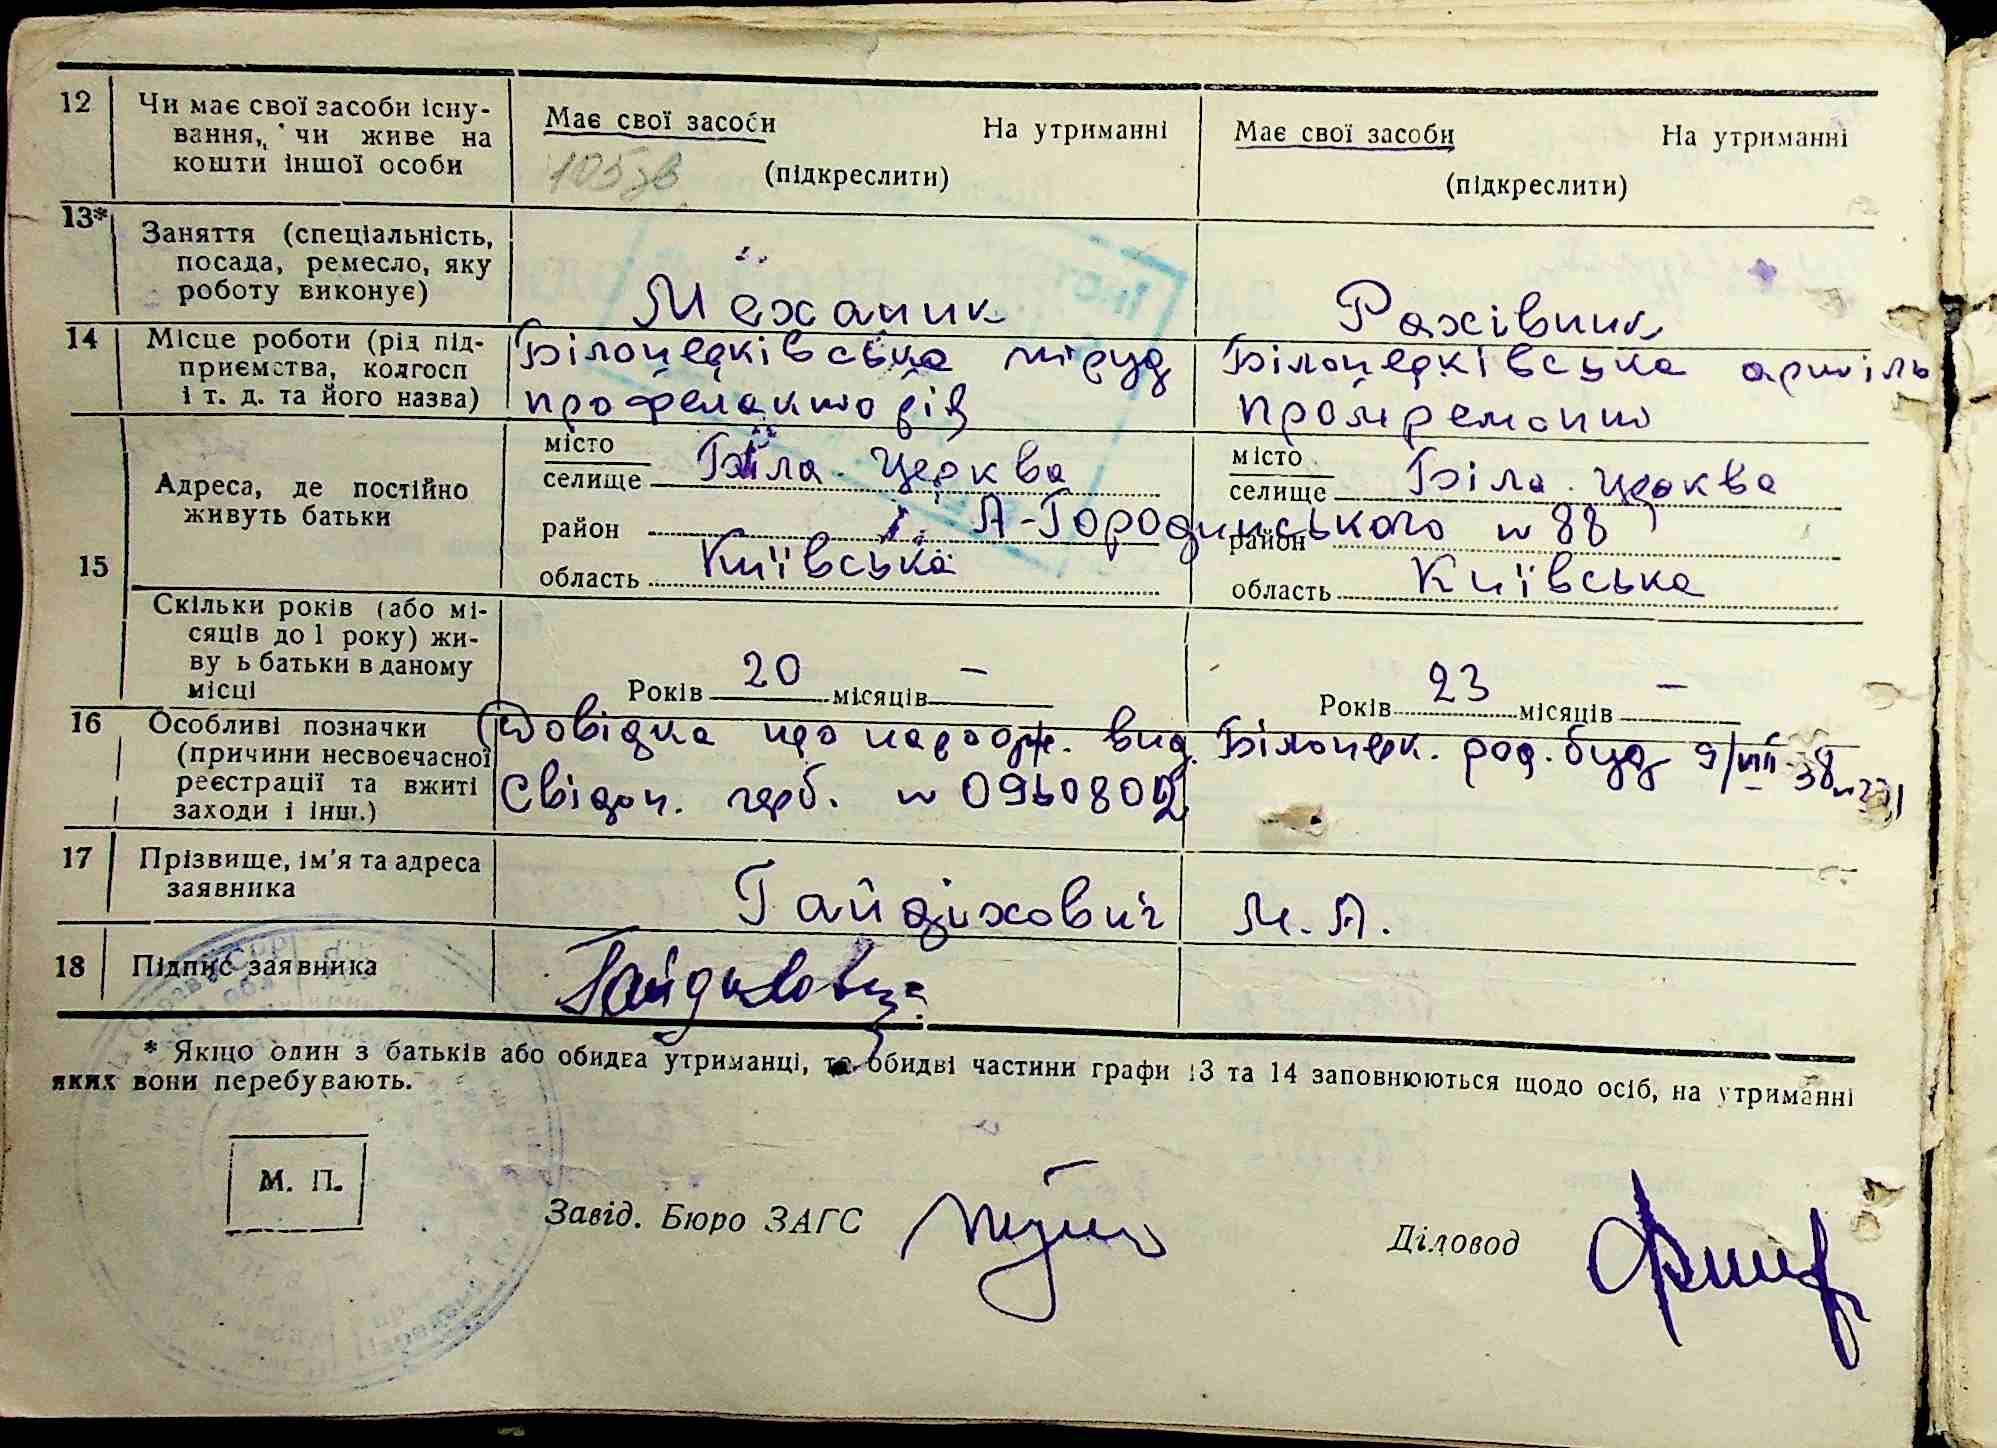 12 Чи має свої засоби існу-
вання, чи живе на
кошти іншої особи
Має свої засоби На утриманні
(підкреслити)
Має свої засоби На утриманні
(підкреслити)
13* Заняття (спеціальність,
посада, ремесло, яку
роботу виконує)
Механик
Рахівник
14 Місце роботи (рід під-
приємства, колгосп
і т. д. та його назва)
Білоцерківська
Білоцерківська артіль
промремонт
15 Адреса, де постійно
живуть батьки
місто
селище Біла-Церква
район
область Київська
місто
селище Біла-Церква
А-Городинського № 88
район
область Київська
Скільки років (або мі-
сяців до 1 року) жи-
ву ь батьки в даному
місці
Років 20 місяців —
Років 23 місяців —
16 Особливі позначки
(причини несвоєчасної
реєстрації та вжиті
заходи і інш.)
Довідка про народж. вид. Білоцерк. род. буд 9/VIII-38
Свідоц. герб. №
17 Прізвище, ім'я та адреса
заявника
Гайдихович М. А.
18 Підпис заявника
* Якщо один з батьків або обидва утриманці, то обидві частини графи 13 та 14 заповнюються щодо осіб, на утриманні
яких вони перебувають.
М. П.
Завід. Бюро ЗАГС
Діловод